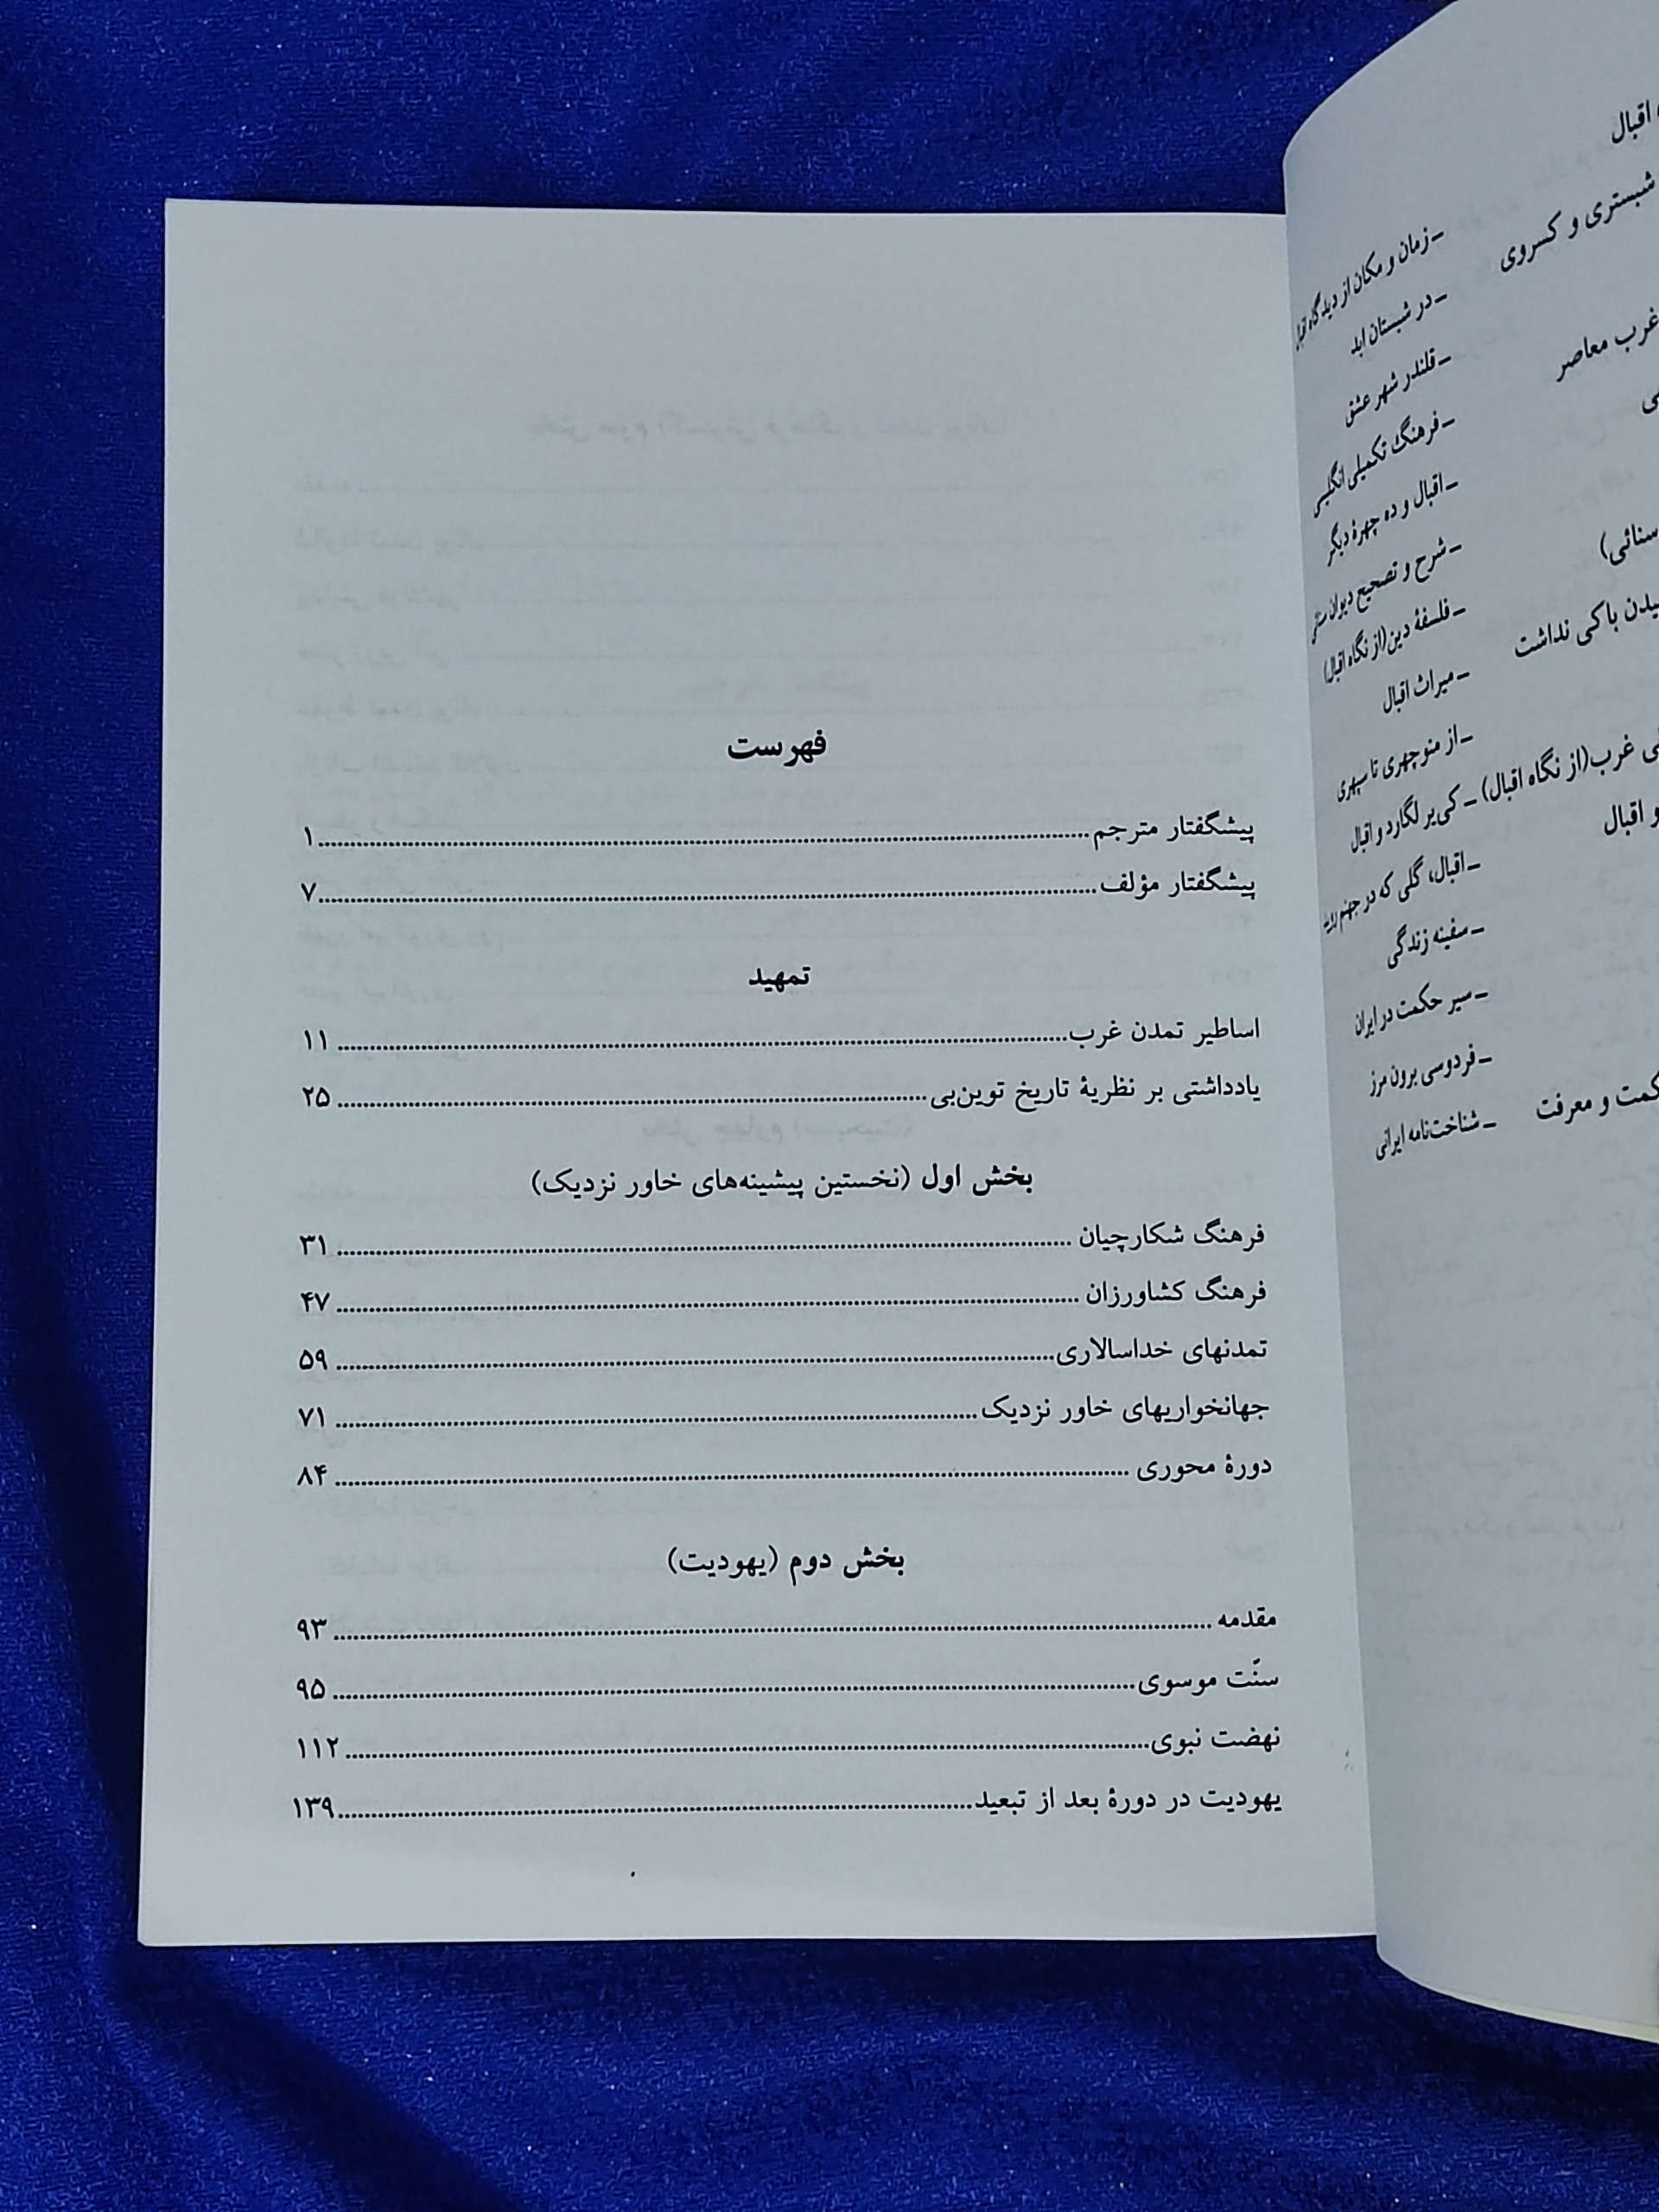 فهرست
پیشگفتار مترجم ........ ۱
پیشگفتار مؤلف ........ ۷
تمهید
اساطیر تمدن غرب ........ ۱۱
یادداشتی بر نظریهٔ تاریخ توین‌بی ........ ۲۵
بخش اول (نخستین پیشینه‌های خاور نزدیک)
فرهنگ شکارچیان ........ ۳۱
فرهنگ کشاورزان ........ ۴۷
تمدنهای خداسالاری ........ ۵۹
جهانخواریهای خاور نزدیک ........ ۷۱
دورهٔ محوری ........ ۸۴
بخش دوم (یهودیت)
مقدمه ........ ۹۳
سنّت موسوی ........ ۹۵
نهضت نبوی ........ ۱۱۲
یهودیت در دورهٔ بعد از تبعید ........ ۱۳۹
اقبال
شبستری و کسروی
غرب معاصر
سنائی)
باکی نداشت
غرب(از نگاه اقبال)
و اقبال
و معرفت
ـ زمان و مکان از دیدگاه اقبال
ـ در شبستان ابد
ـ قلندر شهر عشق
ـ فرهنگ تکمیلی انگلیسی
ـ اقبال و ده چهرهٔ دیگر
ـ شرح و تصحیح دیوان سنائی
ـ فلسفهٔ دین(از نگاه اقبال)
ـ میراث اقبال
ـ از منوچهری تا سپهری
ـ کی‌یر لگارد و اقبال
ـ اقبال، گلی که در جهنم روئید
ـ سفینه زندگی
ـ سیر حکمت در ایران
ـ فردوسی برون مرز
ـ شناخت‌نامه ایرانی